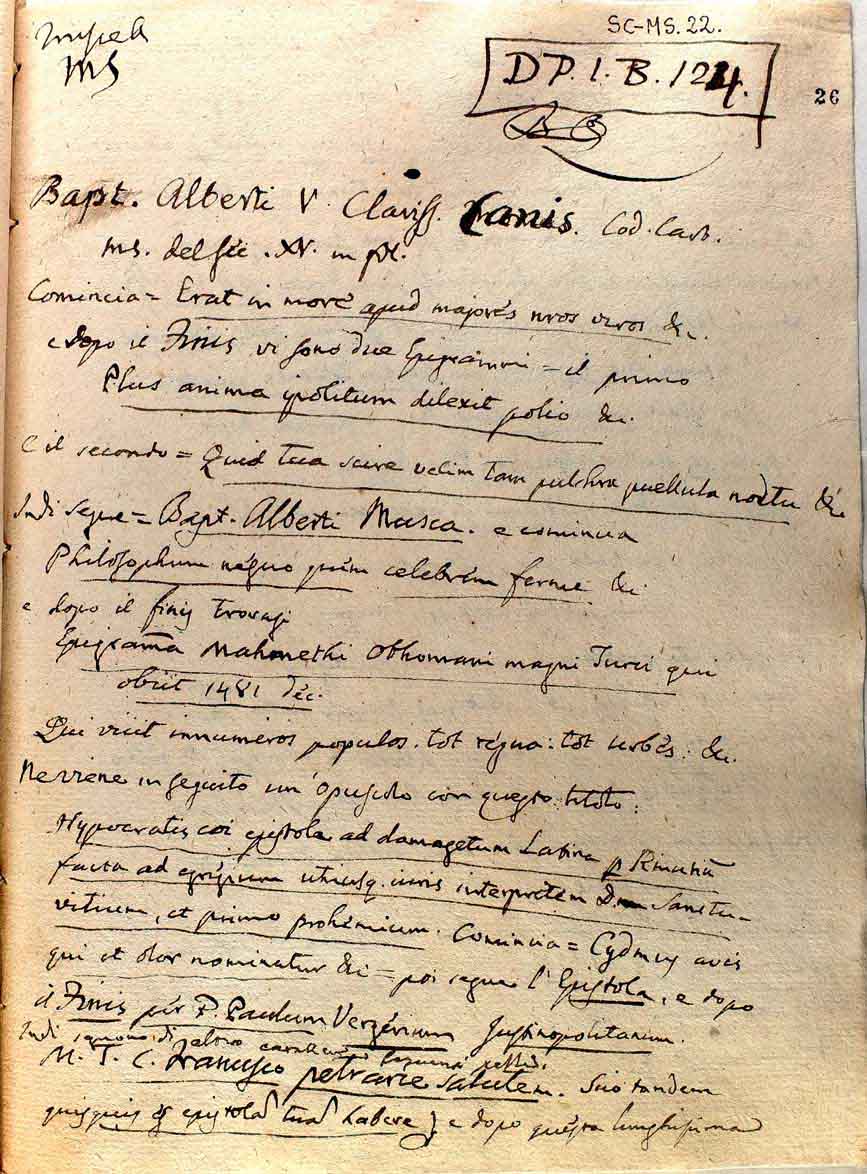 SC-MS. 22.
MS
DP. 1. B. 124.
26
Bapt. Alberti V. Clariss. Canis. Cod. Cart.
ms. del sec. XV. in fol.
Comincia = Erat in more apud majores nros viros &c.
e dopo il Finis vi sono due Epigrammi = il primo
Plus anima ipolitum dilexit polio &c.
E il secondo = Quid tua scire velim tam pulchra puellula noctu &c
Indi segue = Bapt. Alberti Musca. e comincia
Philosophum neguo quem celebrem ferme &c
e dopo il finis trovasi
Epigrama Mahmethi Othomani magni Turci qui
obiit 1481 dec.
Qui vicit innumeros populos. tot regna: tot urbes: &c.
Ne viene in seguito un' opuscolo con questo titolo:
Hypocratis coi epistola ad damagetum Latina p Rinutiu
facta ad egregium utriusq. iuris interpretem D. Sanctu-
vitium, et primo prohemium. Comincia = Cydmus avis
qui et olor nominatur &c = poi segue l'Epistola, e dopo
il Finis per P. Paulum Vergerium Justinopolitanum.
Indi di altro carattere
M. T. C. Francisco petrarce salutem. Sero tandem
quisquis es epistola tua habere) e dopo questa lunghissima